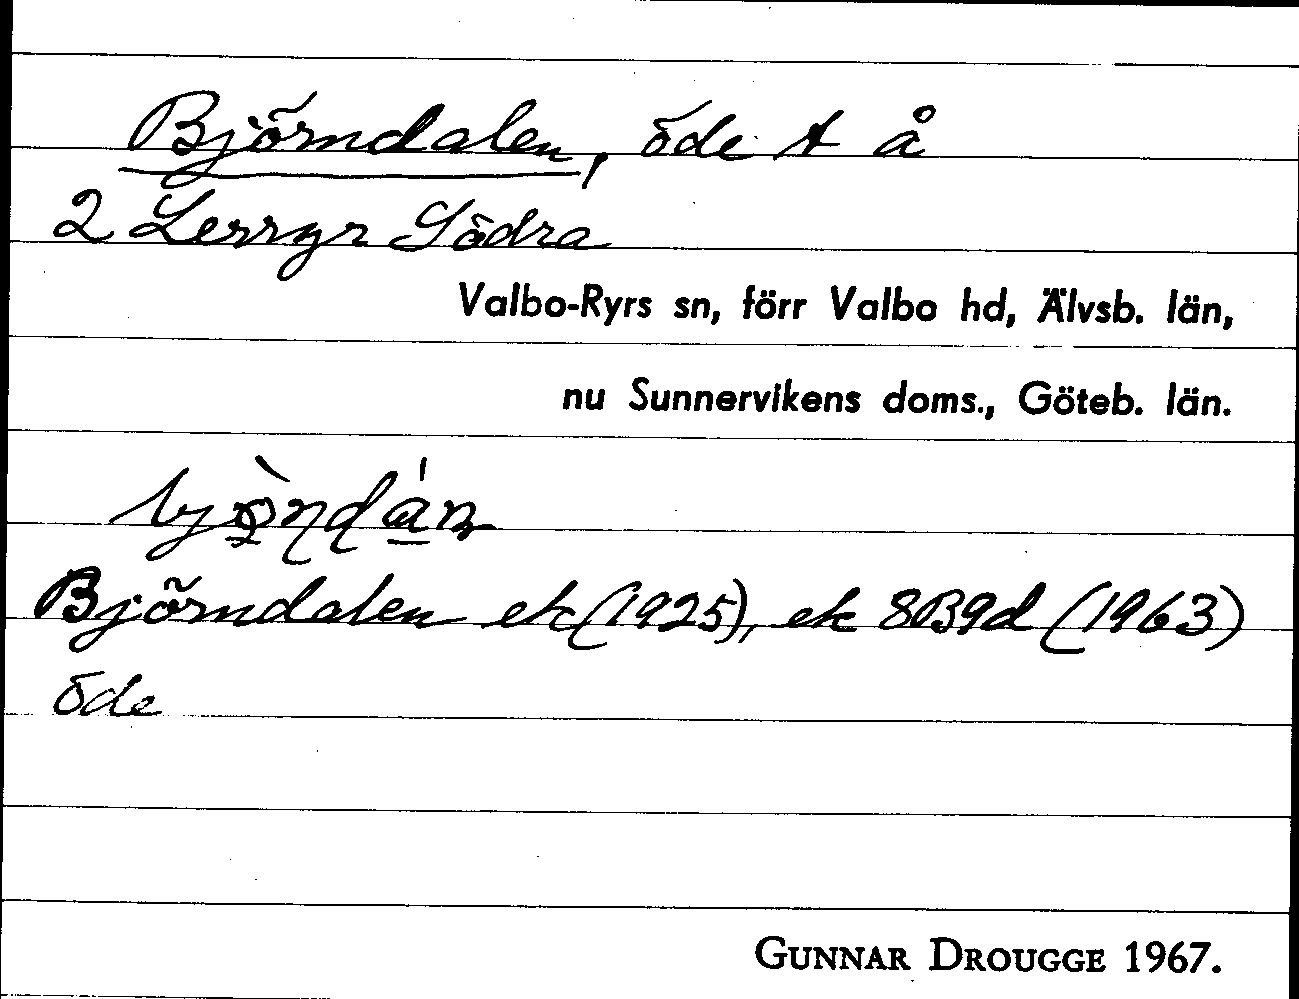 Björndalen, öde t å
2 Lerryr Södra
Valbo-Ryrs sn, förr Valbo hd, Älvsb. län,
nu Sunnervikens doms., Göteb. län.
Björndalen ek (1925), ek 8B9d (1963)
öde
GUNNAR DROUGGE 1967.